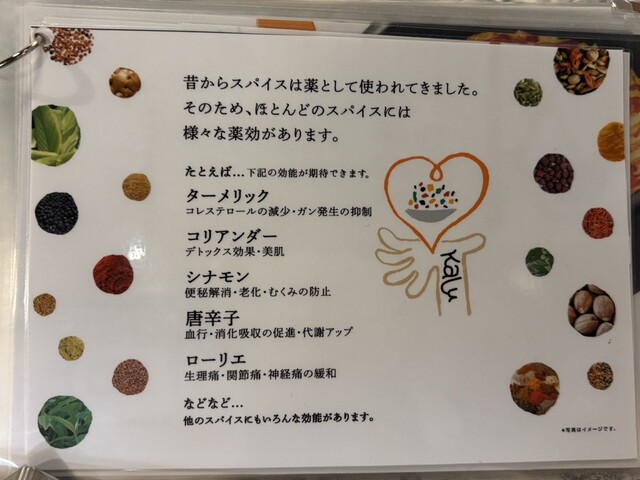 昔からスパイスは薬として使われてきました。
そのため、ほとんどのスパイスには
様々な薬効があります。
たとえば…下記の効能が期待できます。
ターメリック
コレステロールの減少・ガン発生の抑制
コリアンダー
デトックス効果・美肌
シナモン
便秘解消・老化・むくみの防止
唐辛子
血行・消化吸収の促進・代謝アップ
ローリエ
生理痛・関節痛・神経痛の緩和
などなど…
他のスパイスにもいろんな効能があります。
Kalu
＊写真はイメージです。